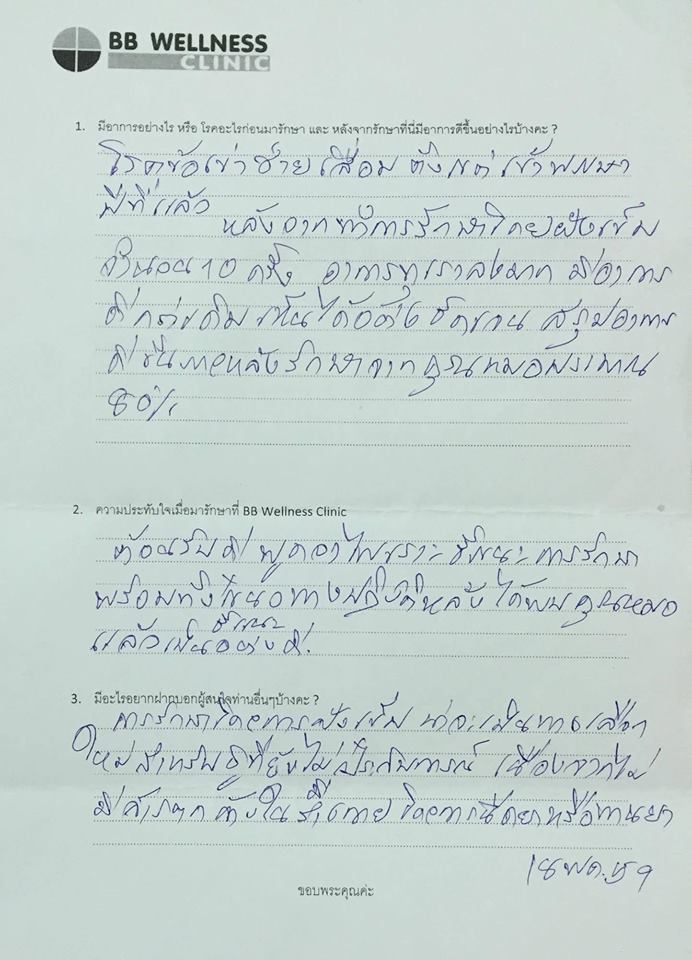 BB WELLNESS
CLINIC
1. มีอาการอย่างไร หรือ โรคอะไรก่อนมารักษา และ หลังจากรักษาที่นี่มีอาการดีขึ้นอย่างไรบ้างคะ ?
โรคข้อเข่าซ้ายเสื่อม ตั้งแต่ เข้าพรรษา
ปีที่แล้ว หลังจากทำการรักษาโดยฝังเข็ม
จำนวน 10 ครั้ง อาการทุเลาลงมาก มีอาการ
ดีกว่าเดิม เห็นได้อย่างชัดเจน สรุปอาการ
ดีขึ้นภายหลังรักษาจากคุณหมอประมาณ
80%
2. ความประทับใจเมื่อมารักษาที่ BB Wellness Clinic
ต้อนรับดี พูดจาไพเราะ ชี้แนะการรักษา
พร้อมทั้งแนวทางปฏิบัติหลังได้พบคุณหมอ
แล้วเป็นอย่างดี.
3. มีอะไรอยากฝากบอกผู้สนใจท่านอื่นๆบ้างคะ ?
การรักษาโดยการฝังเข็ม น่าจะเป็นทางเลือก
ใหม่สำหรับผู้ที่ยังไม่มีประสบการณ์ เนื่องจากไม่
มีสารตกค้างในร่างกาย โดยการฉีดยาหรือทานยา
18 พ.ค. 59
ขอบพระคุณค่ะ